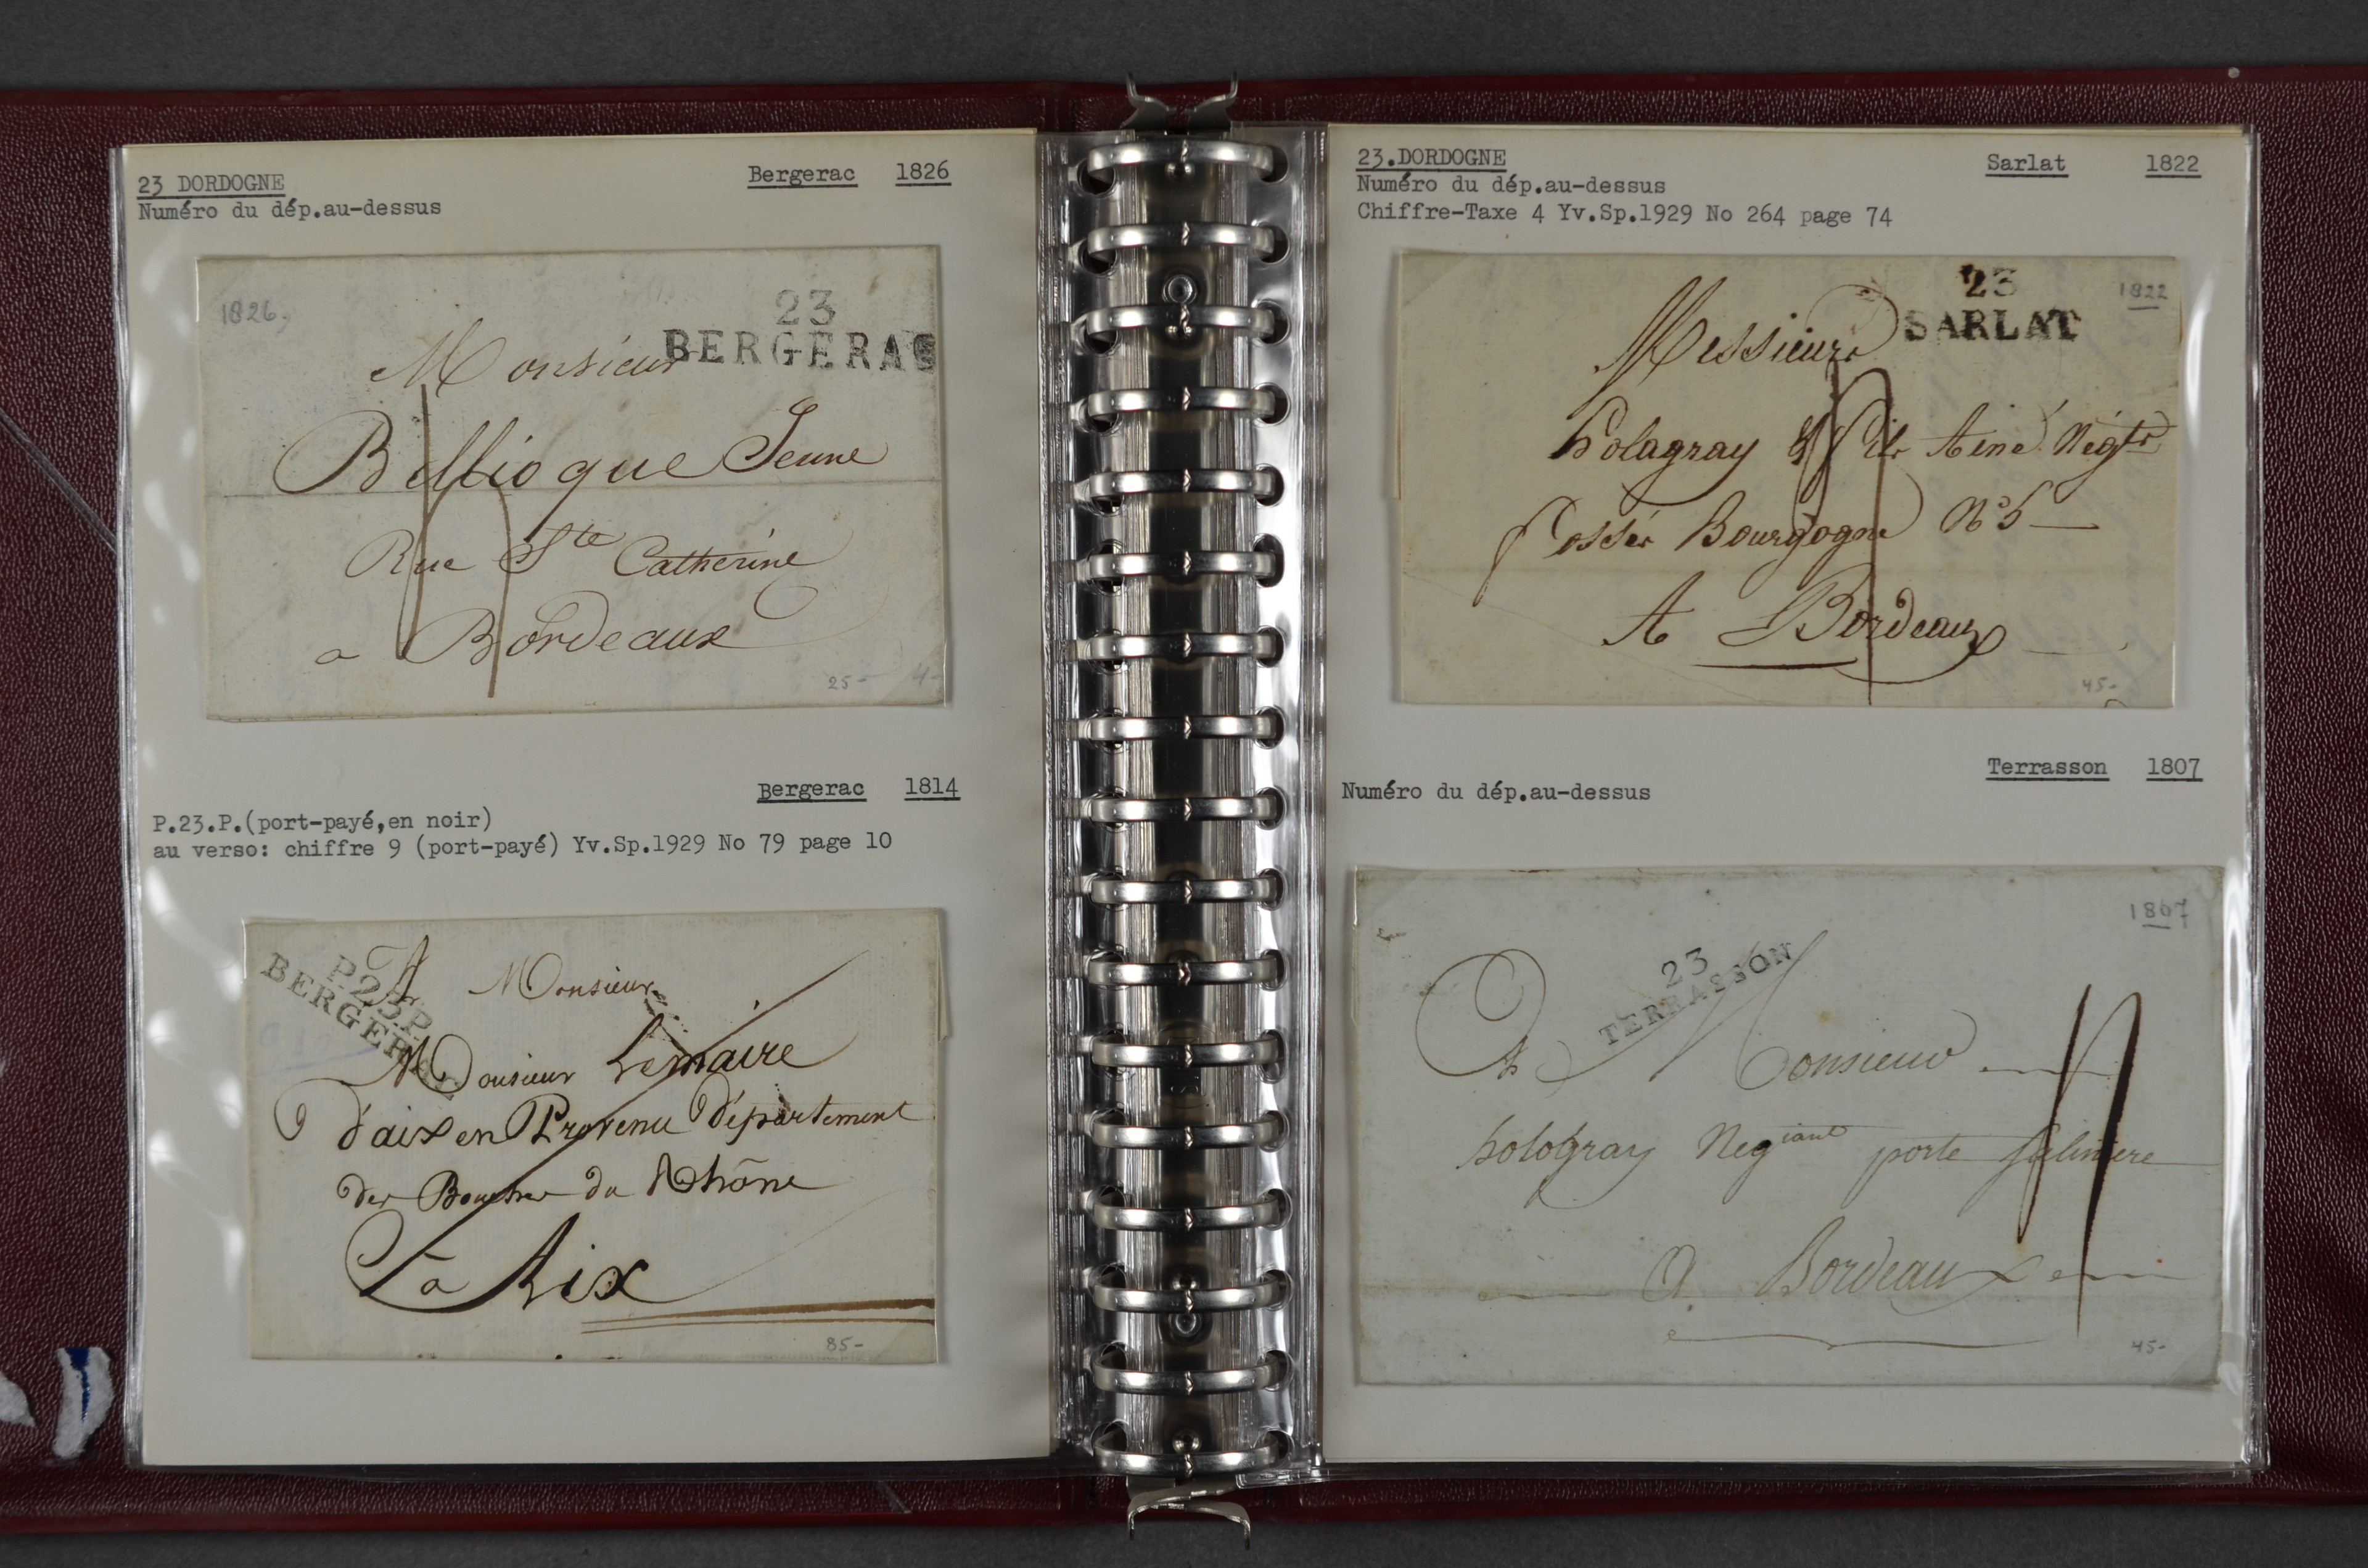 23 DORDOGNE
Bergerac 1826
Numéro du dép.au-dessus
1826.
23
BERGERAC
Monsieur
Jeune
Rue Ste Catherine
a Bordeaux
25- 4-
Bergerac 1814
P.23.P.(port-payé,en noir)
au verso: chiffre 9 (port-payé) Yv.Sp.1929 No 79 page 10
P.23.P.
BERGER
A Monsieur
Monsieur Lemaire
d'aix en Provence Département
des Bouches du Rhône
a Aix
85-
23.DORDOGNE
Sarlat 1822
Numéro du dép.au-dessus
Chiffre-Taxe 4 Yv.Sp.1929 No 264 page 74
23
SARLAT
1822
Messieurs
fils Ainé Negts
fossés Bourgogne N° 5
A Bordeaux
45-
Terrasson 1807
Numéro du dép.au-dessus
1807
23
TERRASSON
A Monsieur
Negiant porte
A Bordeaux
45-